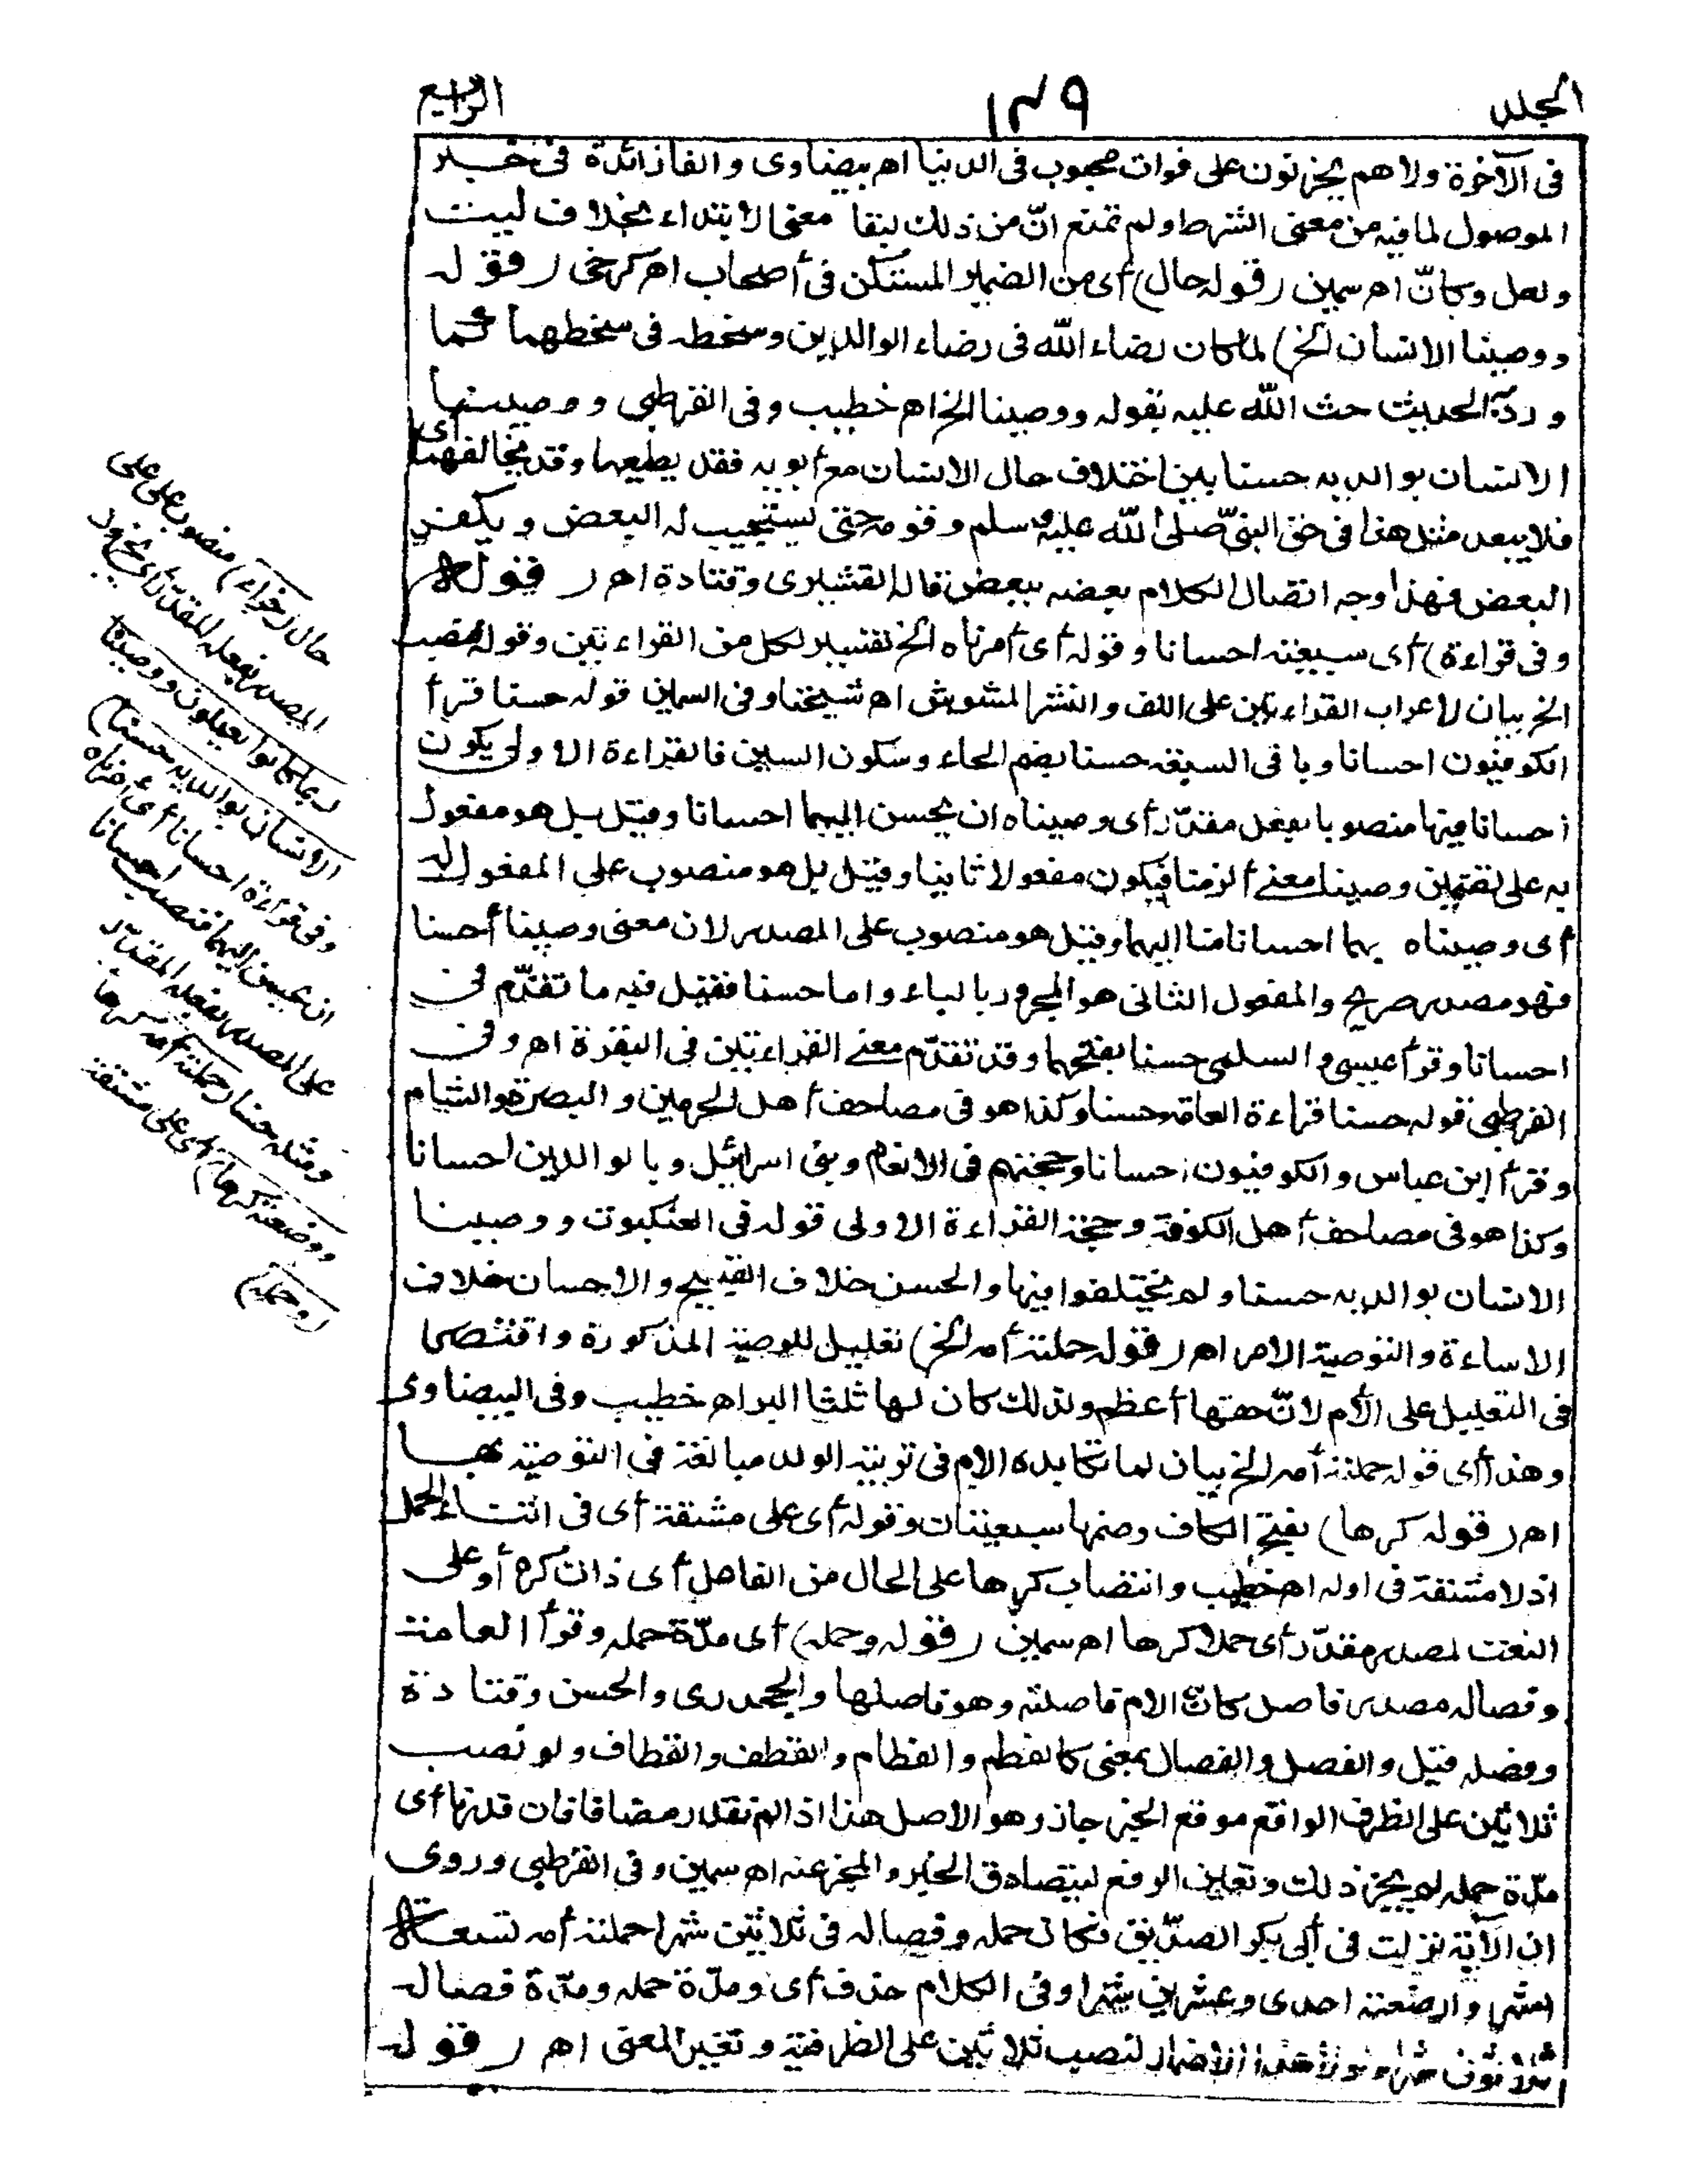 المجلد
١٣٩
الرابع
فى الآخرة ولا هم يحزنون على فوات محبوب فى الدنيا اهـ بيضاوى والفا زائدة فى خبر
الموصول لما فيه من معنى الشرط ولم تمنع انّ من ذلك لبقا معنى الابتداء بخلاف ليت
ولعل وكانّ اهـ سمين (قوله حال) أى من الضمير المستكن فى أصحاب اهـ كرخى (قوله
ووصينا الانسان الخ) لما كان رضاء الله فى رضاء الوالدين وسخطه فى سخطهما كما
ورد به الحديث حث الله عليه بقوله ووصينا الخ اهـ خطيب وفى القرطبى ووصينا
الانسان بوالديه حسنا بين اختلاف حال الانسان مع أبويه فقد يطيعهما وقد يخالفهما أى
فلا يبعد مثل هذا فى حق النبىّ صلى الله عليه وسلم وقومه حتى يستجيب له البعض ويكفر
البعض فهذا وجه اتصال الكلام بعضه ببعض قاله القشيرى وقتادة اهـ (قوله
وفى قراءة) أى سبعية احسانا وقوله أى أمرناه الخ تفسير لكل من القراءتين وقوله فنصب
الخ بيان لاعراب القراءتين على اللف والنشر المشوش اهـ شيخنا وفى السمين قوله حسنا قرأ
الكوفيون احسانا وباقى السبعة حسنا بضم الحاء وسكون السين فالقراءة الاولى يكون
احسانا فيها منصوبا بفعل مقدّر أى وصيناه ان يحسن اليهما احسانا وقيل بل هو مفعول
به على تضمين وصينا معنى ألزمنا فيكون مفعولا ثانيا وقيل بل هو منصوب على المفعول له
أى وصيناه بهما احسانا منا اليهما وقيل هو منصوب على المصدر لان معنى وصينا أحسنا
فهو مصدر صريح والمفعول الثانى هو المجرور بالباء واما حسنا فقيل فيه ما تقدّم فى
احسانا وقرأ عيسى والسلمى حسنا بفتحهما وقد تقدّم معنى القراءتين فى البقرة اهـ وفى
القرطبى قوله حسنا قراءة العامة حسنا وكذا هو فى مصاحف أهل الحرمين والبصرة والشام
وقرأ ابن عباس والكوفيون احسانا وحجتهم فى الانعام وبنى اسرائيل وبالوالدين احسانا
وكذا هو فى مصاحف أهل الكوفة وحجة القراءة الاولى قوله فى العنكبوت ووصينا
الانسان بوالديه حسنا ولم يختلفوا فيها والحسن خلاف القبيح والاحسان خلاف
الاساءة والتوصية الامر اهـ (قوله حملته أمه الخ) تعليل للوصية المذكورة واقتصر
فى التعليل على الأم لانّ حقها أعظم ولذلك كان لها ثلثا البر اهـ خطيب وفى البيضاوى
وهذا أى قوله حملته أمه الخ بيان لما تكابده الام فى تربية الولد مبالغة فى التوصية بها
اهـ (قوله كرها) بفتح الكاف وضمها سبعيتان وقوله أى على مشقة أى فى اثناء الحمل
اذ لا مشقة فى اوله اهـ خطيب وانتصاب كرها على الحال من الفاعل أى ذات كره أو على
النعت لمصدر مقدّر أى حملا كرها اهـ سمين (قوله وحمله) أى مدّة حمله وقرأ العامة
وفصاله مصدر فاصل كانّ الام فاصلته وهو فاصلها والجحدرى والحسن وقتادة
وفصله قيل والفصل والفصال بمعنى كالفطم والفطام والقطف والقطاف ولو نصب
ثلاثين على الظرف الواقع موقع الخبر جاز وهو الاصل هذا اذا لم نقدر مضافا فان قدرنا أى
مدّة حمله لم يجز ذلك وتعين الرفع ليتصادق الخبر والمخبر عنه اهـ سمين وفى القرطبى وروى
ان الآية نزلت فى أبى بكر الصدّيق فكان حمله وفصاله فى ثلاثين شهرا حملته أمه تسعة
اشهر وارضعته احدى وعشرين شهرا وفى الكلام حذف أى ومدّة حمله ومدّة فصاله
ثلاثون شهرا ولولا هذا الاضمار لنصب ثلاثين على الظرفية وتغير المعنى اهـ (قوله
حال (جزاء) منصوب على
المصدر بفعله المقدّر أى يجزون
(بما كانوا يعملون ووصينا
الانسان بوالديه حسنا)
وفى قراءة احسانا أى أمرناه
ان يحسن اليهما فنصب احسانا
على المصدر بفعله المقدّر
ومثله حسنا (حملته أمه كرها
ووضعته كرها) أى على مشقة
(وحمله)